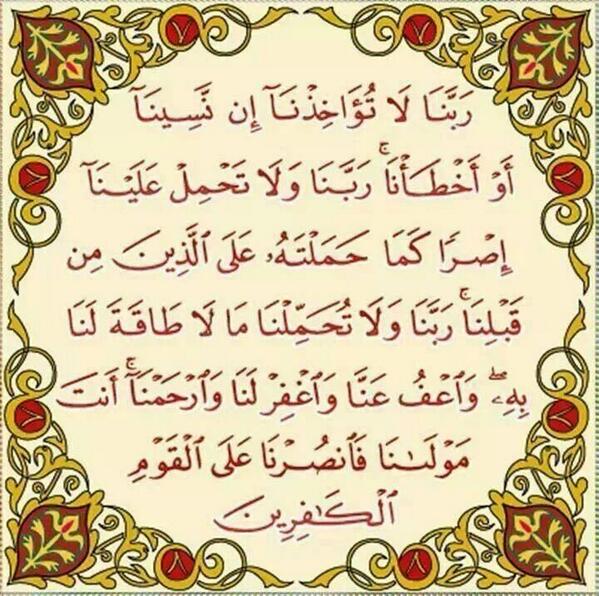 رَبَّنَا لَا تُؤَاخِذْنَآ إِن نَّسِينَآ
أَوْ أَخْطَأْنَا ۚ رَبَّنَا وَلَا تَحْمِلْ عَلَيْنَآ
إِصْرًا كَمَا حَمَلْتَهُۥ عَلَى ٱلَّذِينَ مِن
قَبْلِنَا ۚ رَبَّنَا وَلَا تُحَمِّلْنَا مَا لَا طَاقَةَ لَنَا
بِهِۦ ۖ وَٱعْفُ عَنَّا وَٱغْفِرْ لَنَا وَٱرْحَمْنَآ ۚ أَنتَ
مَوْلَىٰنَا فَٱنصُرْنَا عَلَى ٱلْقَوْمِ
ٱلْكَٰفِرِينَ